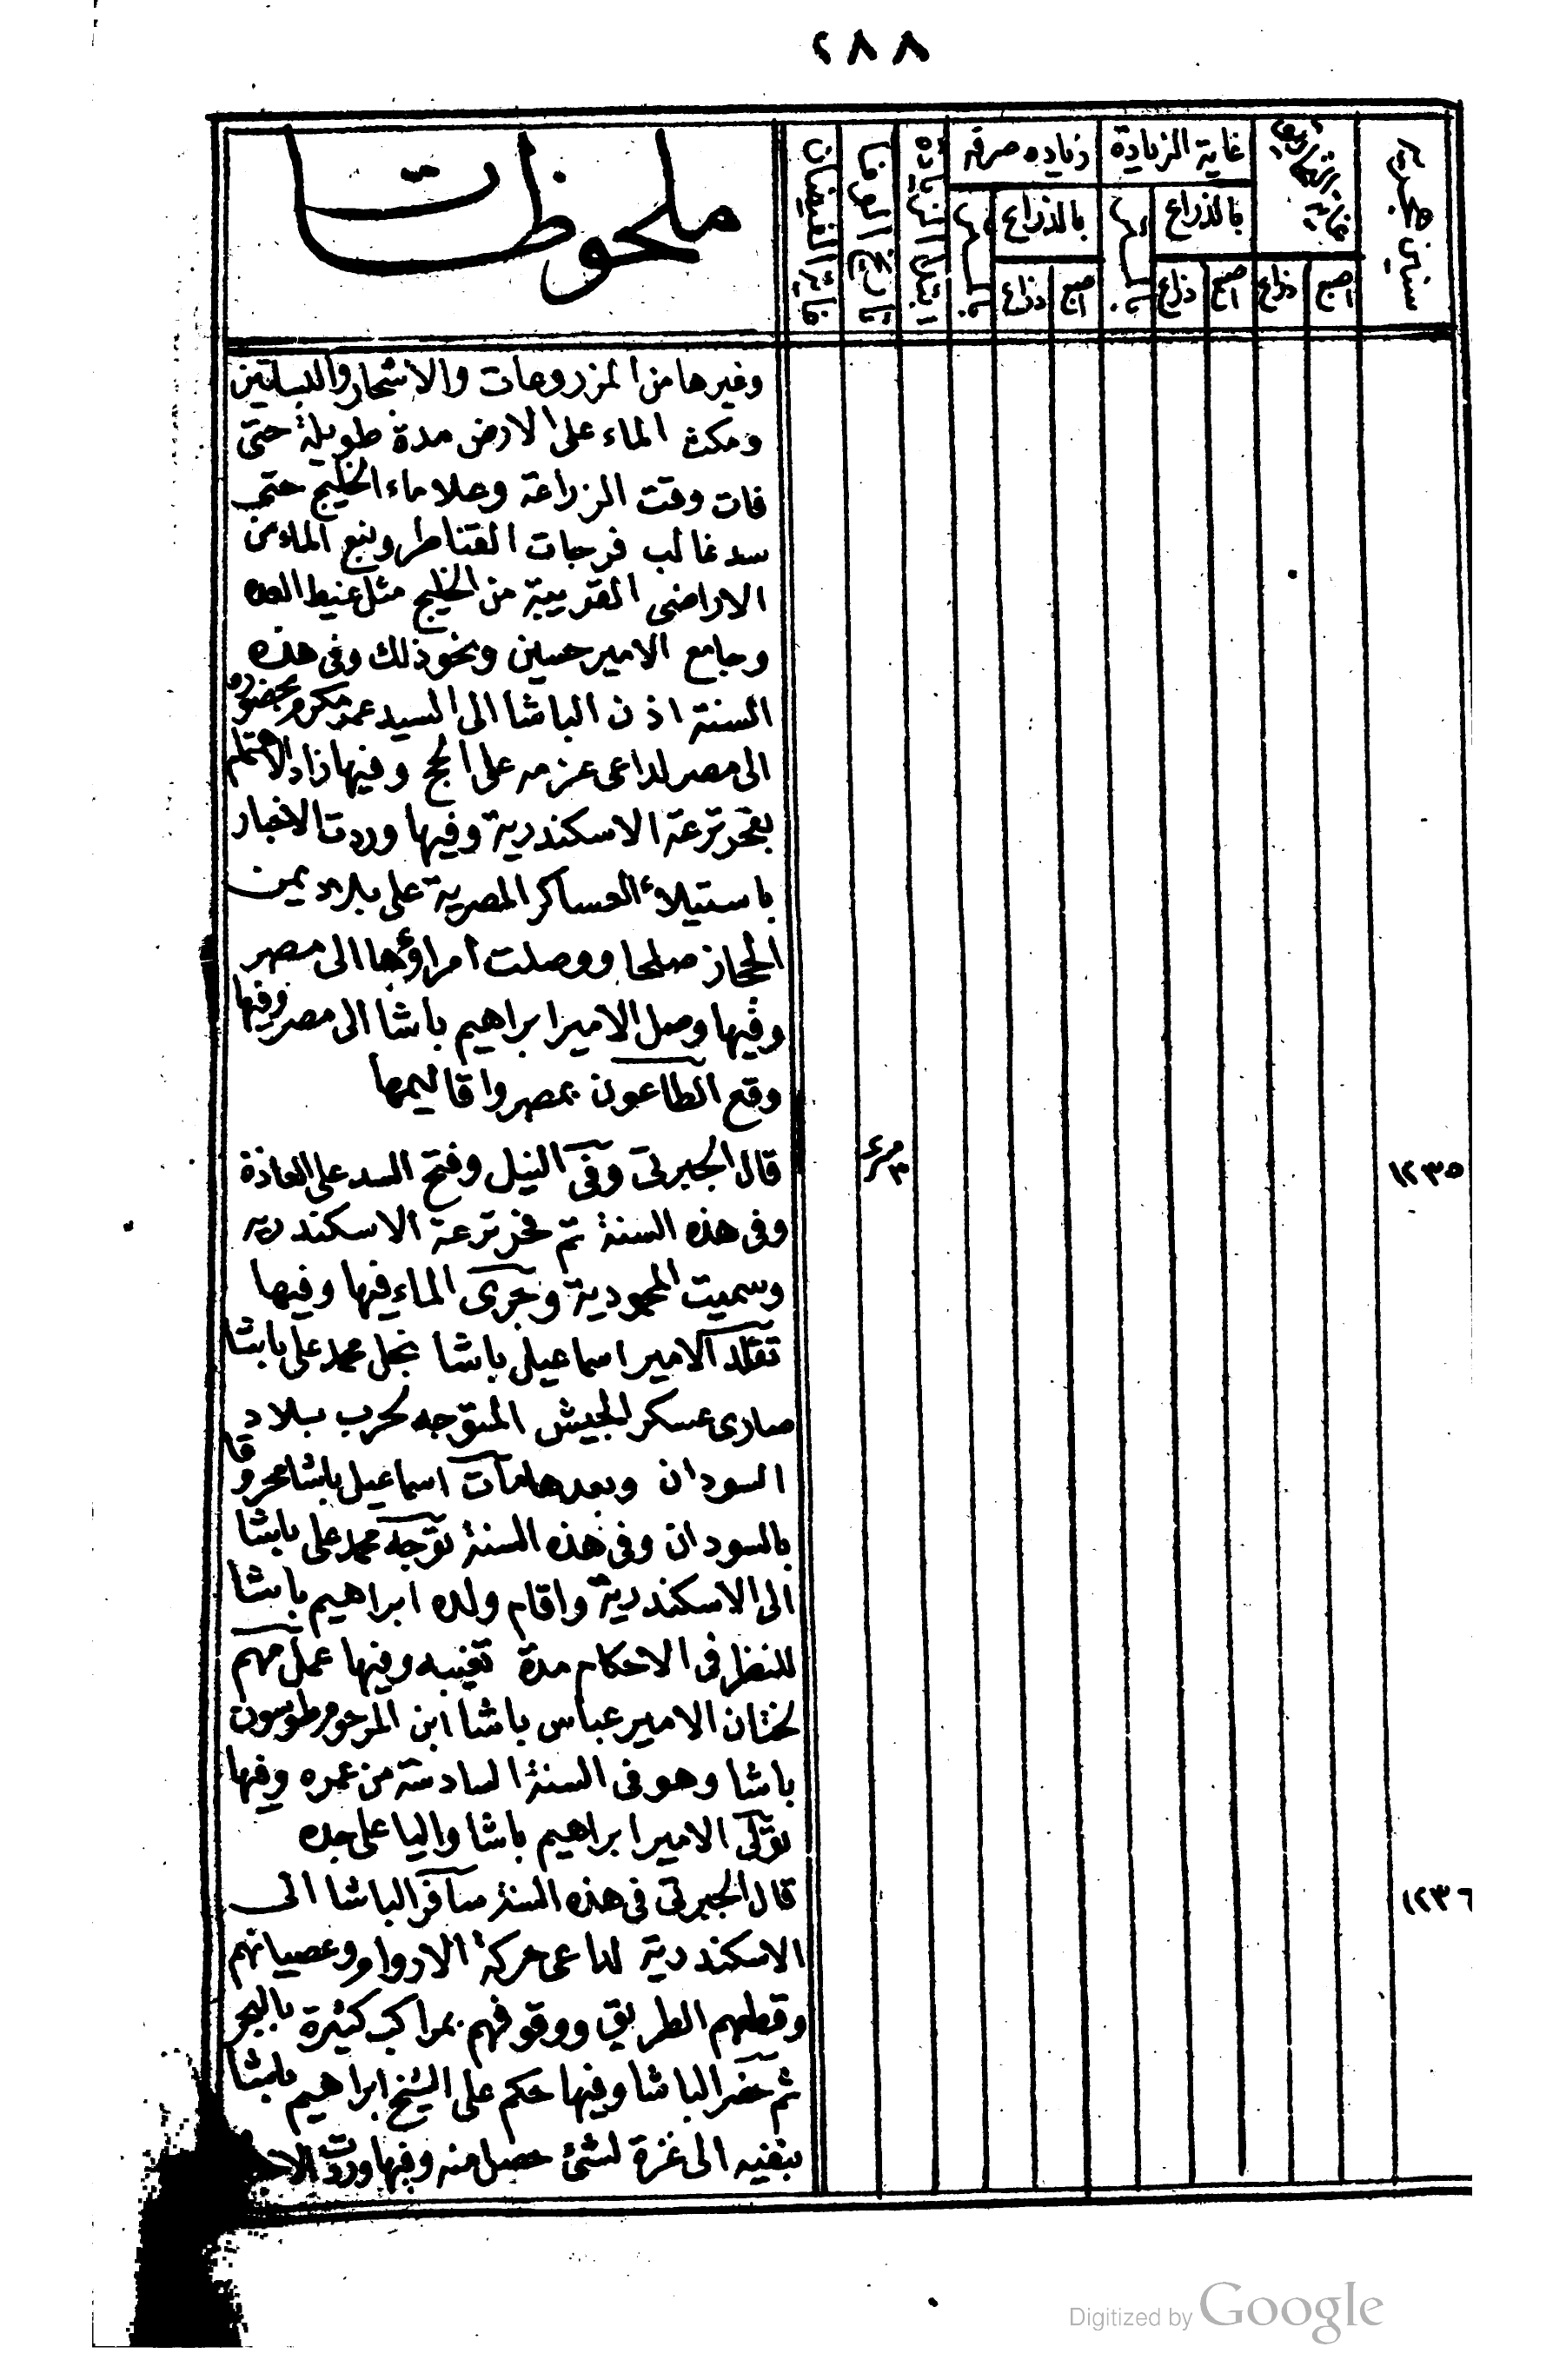 ٢٨٨
سنين هجرية
غاية التحاريق
اصبع
ذراع
غاية الزيادة
بالذراع
اصبع
ذراع
زياده صرفه
بالذراع
اصبع
ذراع
تاريخ الوفا
ملحوظات
وغيرها من المزروعات والاشجار والبساتين
ومكث الماء على الارض مدة طويلة حتى
فات وقت الزراعة وعلا ماء الخليج حتى
سد غالب فرجات القناطر ونبع الماء من
الاراضى القريبة من الخليج مثل غيط العده
وجامع الامير حسين ونحو ذلك وفى هذه
السنة اذن الباشا الى السيد عمر مكرم بحضوره
الى مصر لداعى عزمه على الحج وفيها زاد الاهتمام
بفحر ترعة الاسكندرية وفيها وردت الاخبار
باستيلاء العساكر المصرية على بلاد يمن
الحجاز صلحا ووصلت امراؤها الى مصر
وفيها وصل الامير ابراهيم باشا الى مصر وفيها
وقع الطاعون بمصر واقاليمها
١٢٣٥
قال الجبرتى وفى النيل وفتح السد على العادة
وفى هذه السنة تم فحر ترعة الاسكندريه
وسميت المحمودية وجرى الماء فيها وفيها
تقلد الامير اسماعيل باشا نجل محمد على باشا
صارى عسكر الجيش المتوجه لحرب بلاد
السودان وبعدها مات اسماعيل باشا محروقا
بالسودان وفى هذه السنة توجه محمد على باشا
الى الاسكندرية واقام ولده ابراهيم باشا
للنظر فى الاحكام مدة تغيبه وفيها عمل مهم
لختان الامير عباس باشا ابن المرحوم طوسون
باشا وهو فى السنة السادسة من عمره وفيها
تولى الامير ابراهيم باشا واليا على جده
١٢٣٦
قال الجبرتى فى هذه السنة سافر الباشا الى
الاسكندرية لداعى حركة الاروام وعصيانهم
وقطعهم الطريق ووقوفهم بمراكب كثيرة بالبحر
ثم حضر الباشا وفيها حكم على الشيخ ابراهيم باشا
بنفيه الى غزة لشئ حصل منه وفيها وردت
Digitized by Google